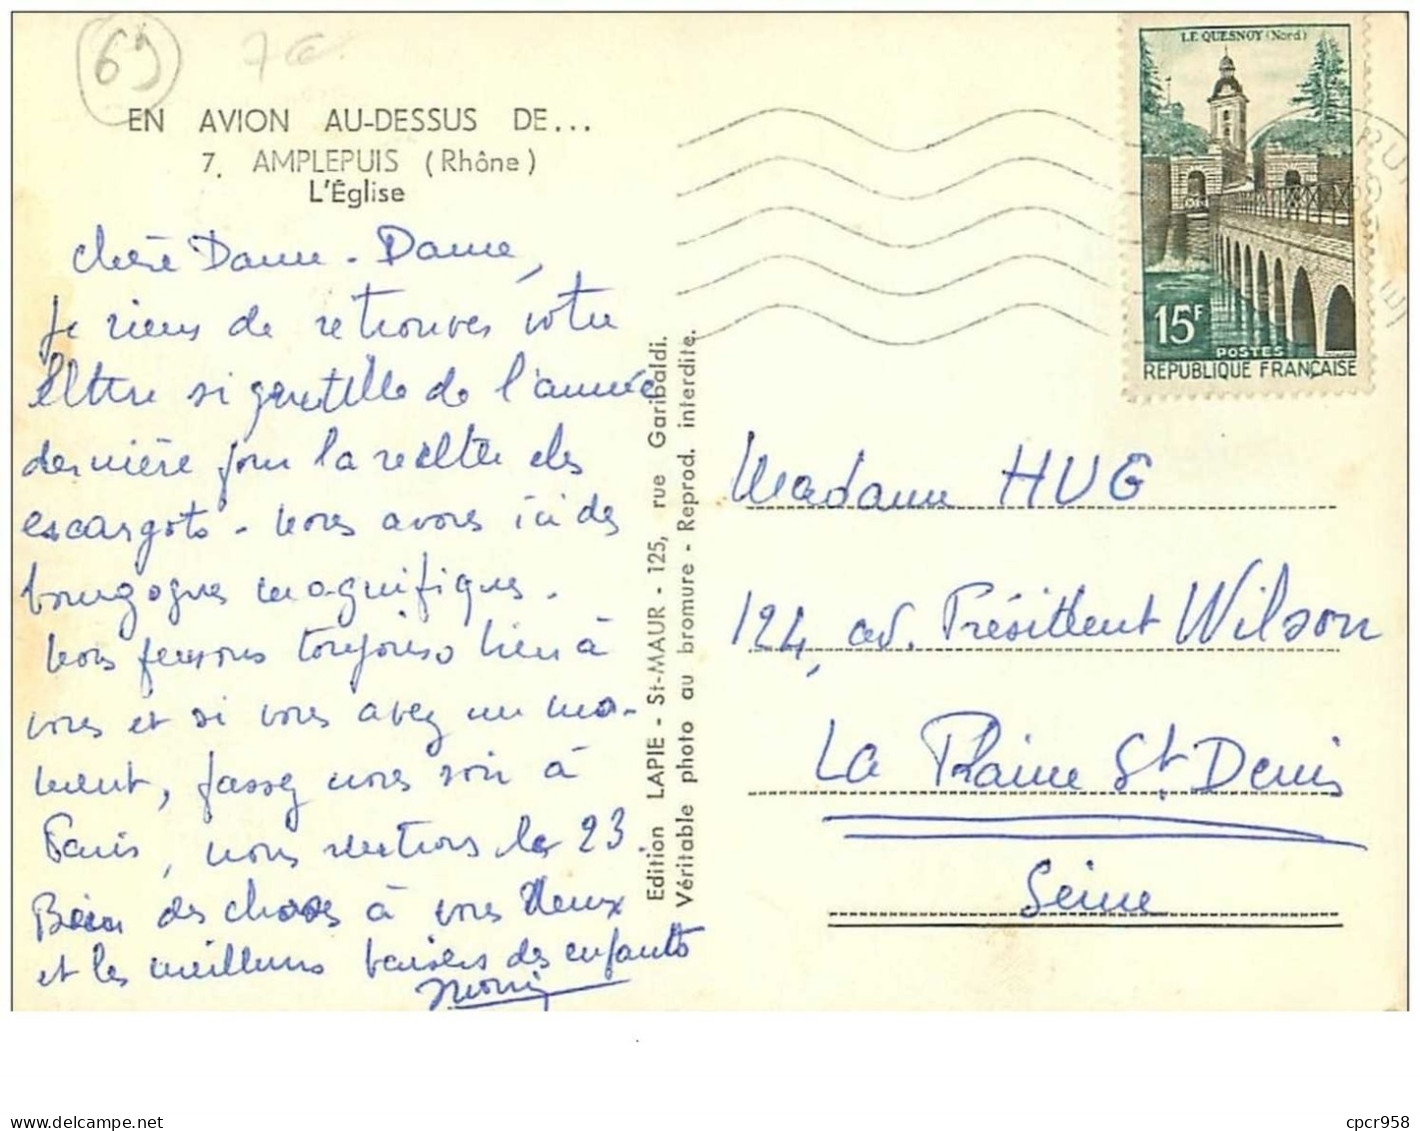 69
7€
EN AVION AU-DESSUS DE...
7. AMPLEPUIS (Rhône)
L'Église
Chère Dame-Dame,
Je viens de retrouver votre
lettre si gentille de l'année
dernière pour la recette des
escargots. Nous avons ici des
bourgogne magnifiques.
Nous pensons toujours bien à
vous et si vous avez un mo-
ment, passez nous voir à
Paris, nous rentrons le 23.
Bien des choses à vous deux
et les meilleurs baisers des enfants
Edition LAPIE - St-MAUR - 125, rue Garibaldi.
Véritable photo au bromure - Reprod. interdite.
LE QUESNOY (Nord)
15F
POSTES
REPUBLIQUE FRANÇAISE
Madame HUG
124, av. Président Wilson
La Plaine St. Denis
Seine
cpcr958